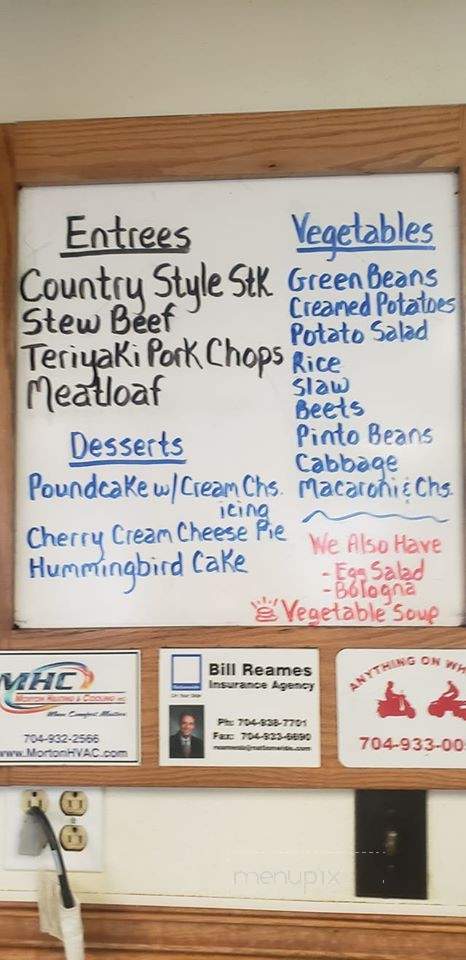 Entrees
Country Style Stk
Stew Beef
Teriyaki Pork Chops
Meatloaf
Desserts
Poundcake w/Cream Chs.
icing
Cherry Cream Cheese Pie
Hummingbird Cake
Vegetables
Green Beans
Creamed Potatoes
Potato Salad
Rice
Slaw
Beets
Pinto Beans
Cabbage
Macaroni & Chs.
We Also Have
- Egg Salad
- Bologna
Vegetable Soup
MHC
Morton Heating & Cooling INC
When Comfort Matters
704-932-2566
www.MortonHVAC.com
Nationwide
On Your Side
Bill Reames
Insurance Agency
Ph: 704-938-7701
Fax: 704-933-6690
reamesb@nationwide.com
ANYTHING ON WH
704-933-00
menupix